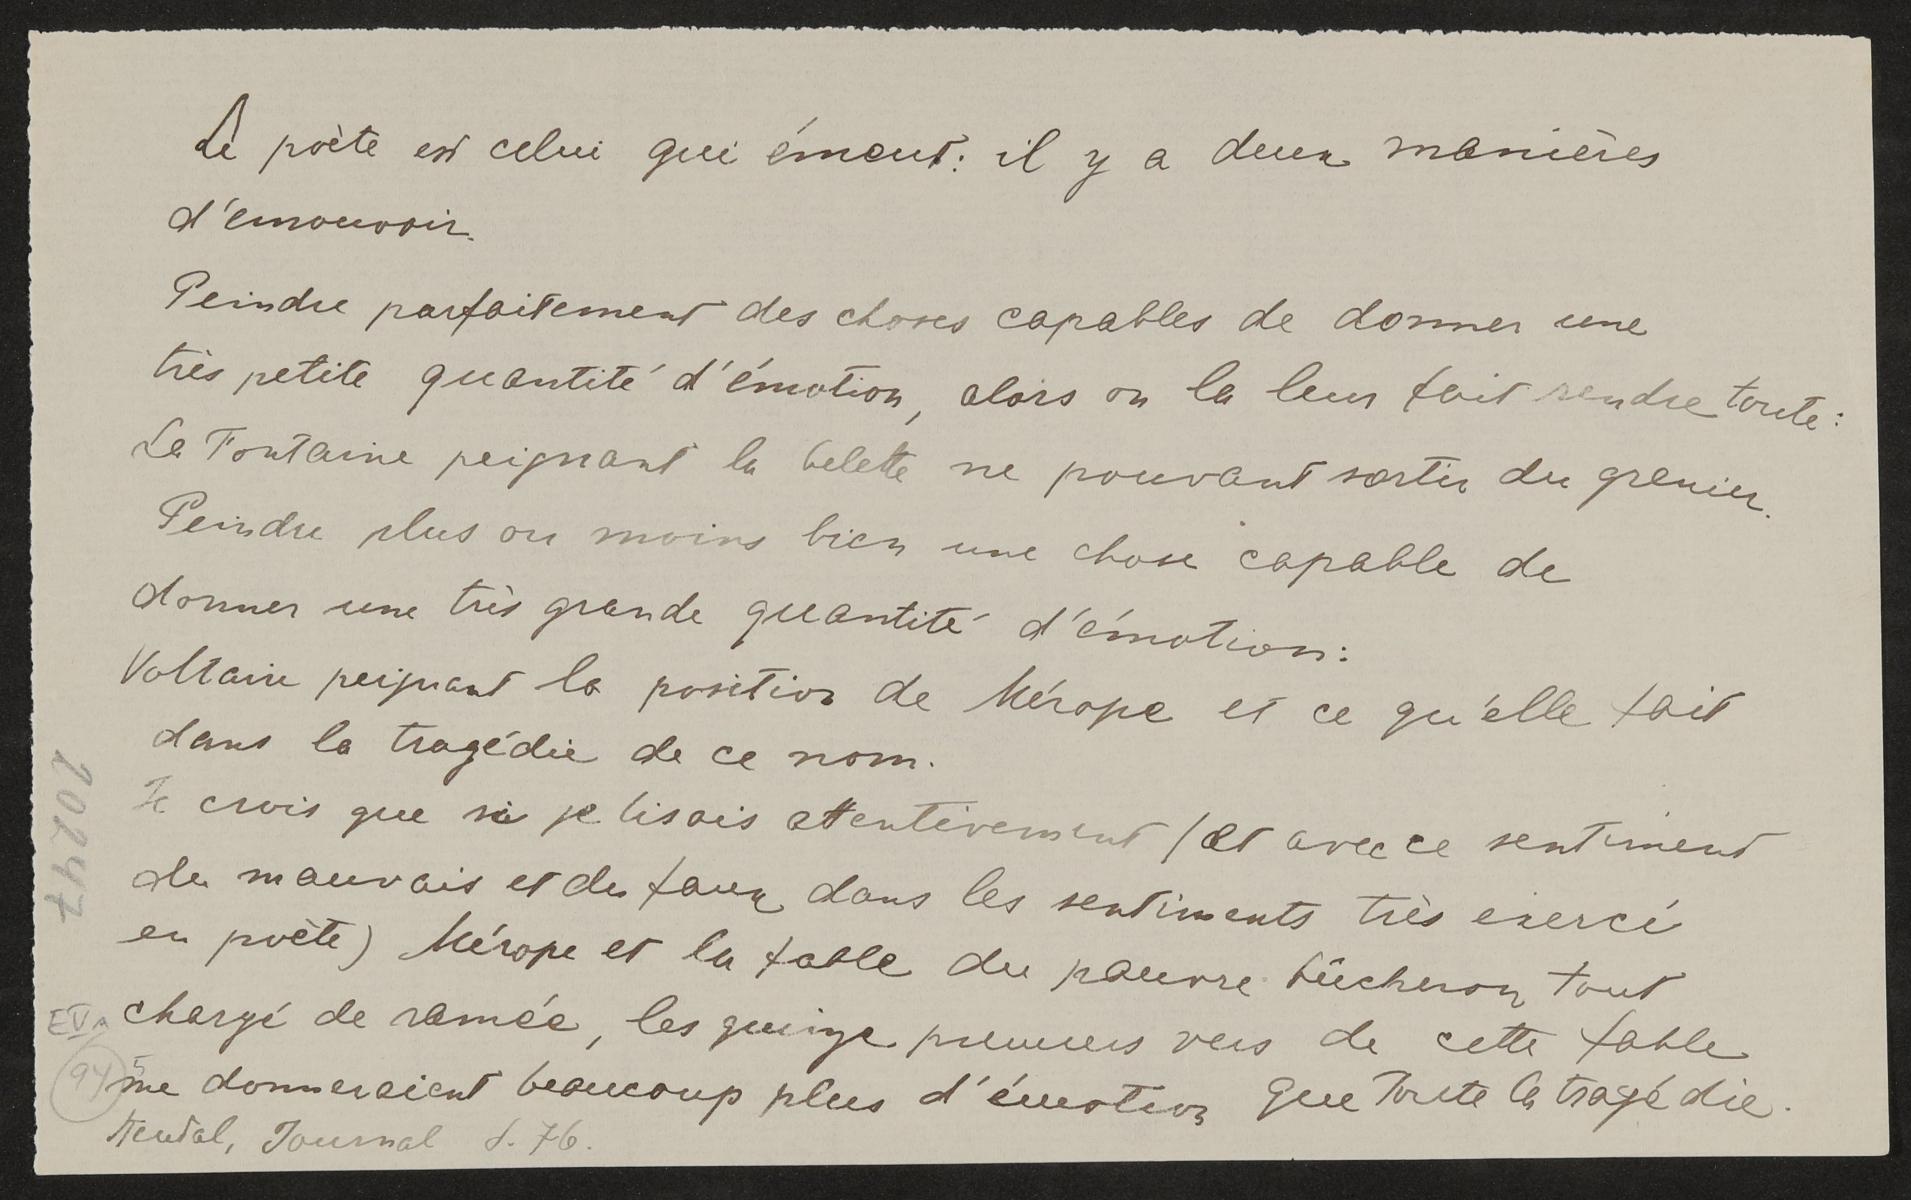 Le poète est celui qui émeut: il y a deux manières
d'émouvoir.
Peindre parfaitement des choses capables de donner une
très petite quantité d'émotion, alors on la leur fait rendre toute:
La Fontaine peignant la belette ne pouvant sortir du grenier.
Peindre plus ou moins bien une chose capable de
donner une très grande quantité d'émotion:
Voltaire peignant la position de Mérope et ce qu'elle fait
dans la tragédie de ce nom.
Je crois que si je lisais attentivement (et avec ce sentiment
du mauvais et du faux dans les sentiments très exercé
en poète) Mérope et la fable du pauvre bûcheron tout
chargé de ramée, les quinze premiers vers de cette fable
me donneraient beaucoup plus d'émotion que toute la tragédie.
Stendal, Journal S. 76.
20247
EVA
94